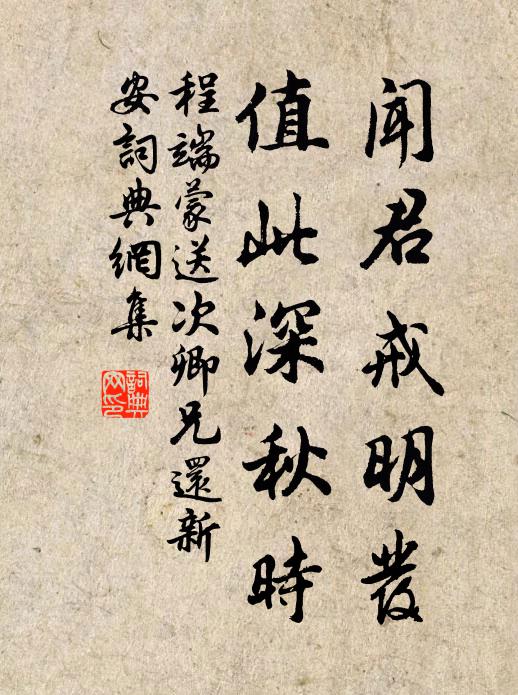 聞君戒明發
值此深秋時
程端蒙送次卿兄還新
安詞典網集
詞典
網印